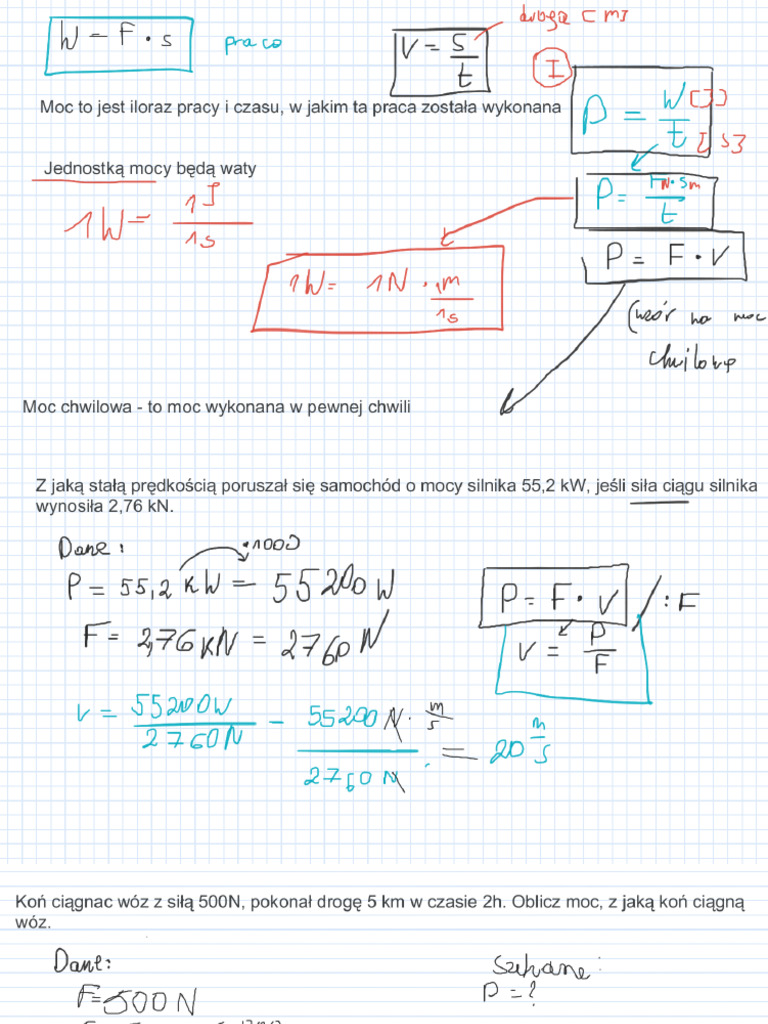 W = F · s
praca
V = s/t
droga [m]
I
Moc to jest iloraz pracy i czasu, w jakim ta praca została wykonana
P = W[J]/t[s]
Jednostką mocy będą waty
1W = 1J/1s
P = F N · s m/t
1W = 1N · 1m/1s
P = F · V
(wzór na moc
chwilową
Moc chwilowa - to moc wykonana w pewnej chwili
Z jaką stałą prędkością poruszał się samochód o mocy silnika 55,2 kW, jeśli siła ciągu silnika
wynosiła 2,76 kN.
Dane:
·1000
P = 55,2 kW = 55200 W
P = F · V /:F
F = 2,76 kN = 2760 N
V = P/F
V = 55200W/2760N = 55200 N · m/s / 2760 N = 20 m/s
Koń ciągnac wóz z siłą 500N, pokonał drogę 5 km w czasie 2h. Oblicz moc, z jaką koń ciągną
wóz.
Dane:
Szukane:
F = 500 N
P = ?